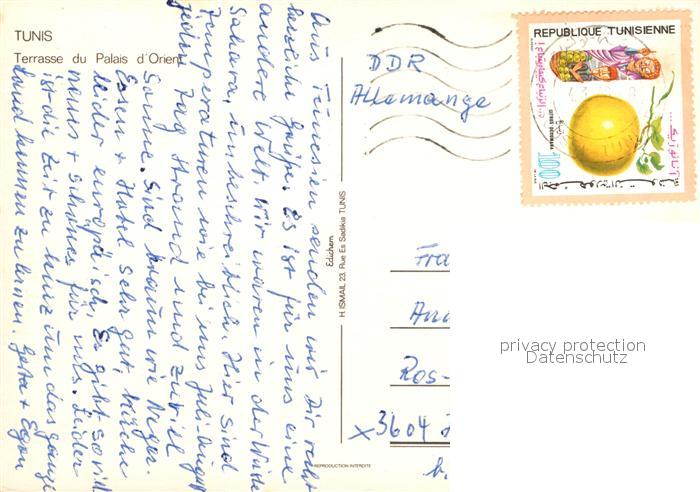 TUNIS
Terrasse du Palais d'Orient
Aus Tunesien senden wir Dir recht
herzliche Grüße. Es ist für uns eine
andere Welt. Wir waren in der Wüste
Sahara, unbeschreiblich. Hier sind
Temperaturen wie bei uns Juli August
jeden Tag Strand und zuviel
Sonne. Sind braun wie Neger.
Essen + Hotel sehr gut, Küche
leider europäisch. Es gibt so viel
neues + schönes für uns. Leider
ist die Zeit zu kurz um das ganze
Land kennen zu lernen. Geta + Egon
Edichem
H ISMAIL 23, Rue Es Sadikia TUNIS
REPRODUCTION INTERDITE
DDR
Allemange
REPUBLIQUE TUNISIENNE
100
الجمهورية التونسية
Fra
Ros-
x3604
b.
privacy protection
Datenschutz